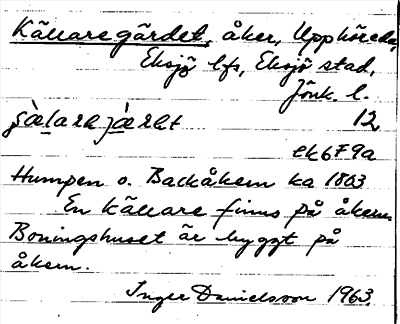 Källaregärdet, åker, Upphöreda,
Eksjö lfs, Eksjö stad,
Jönk. l.
12
ek 6F9a
Humpen o. Backåkern ka 1803
En källare finns på åkern.
Boningshuset är byggt på
åkern.
Inger Danielsson 1963.